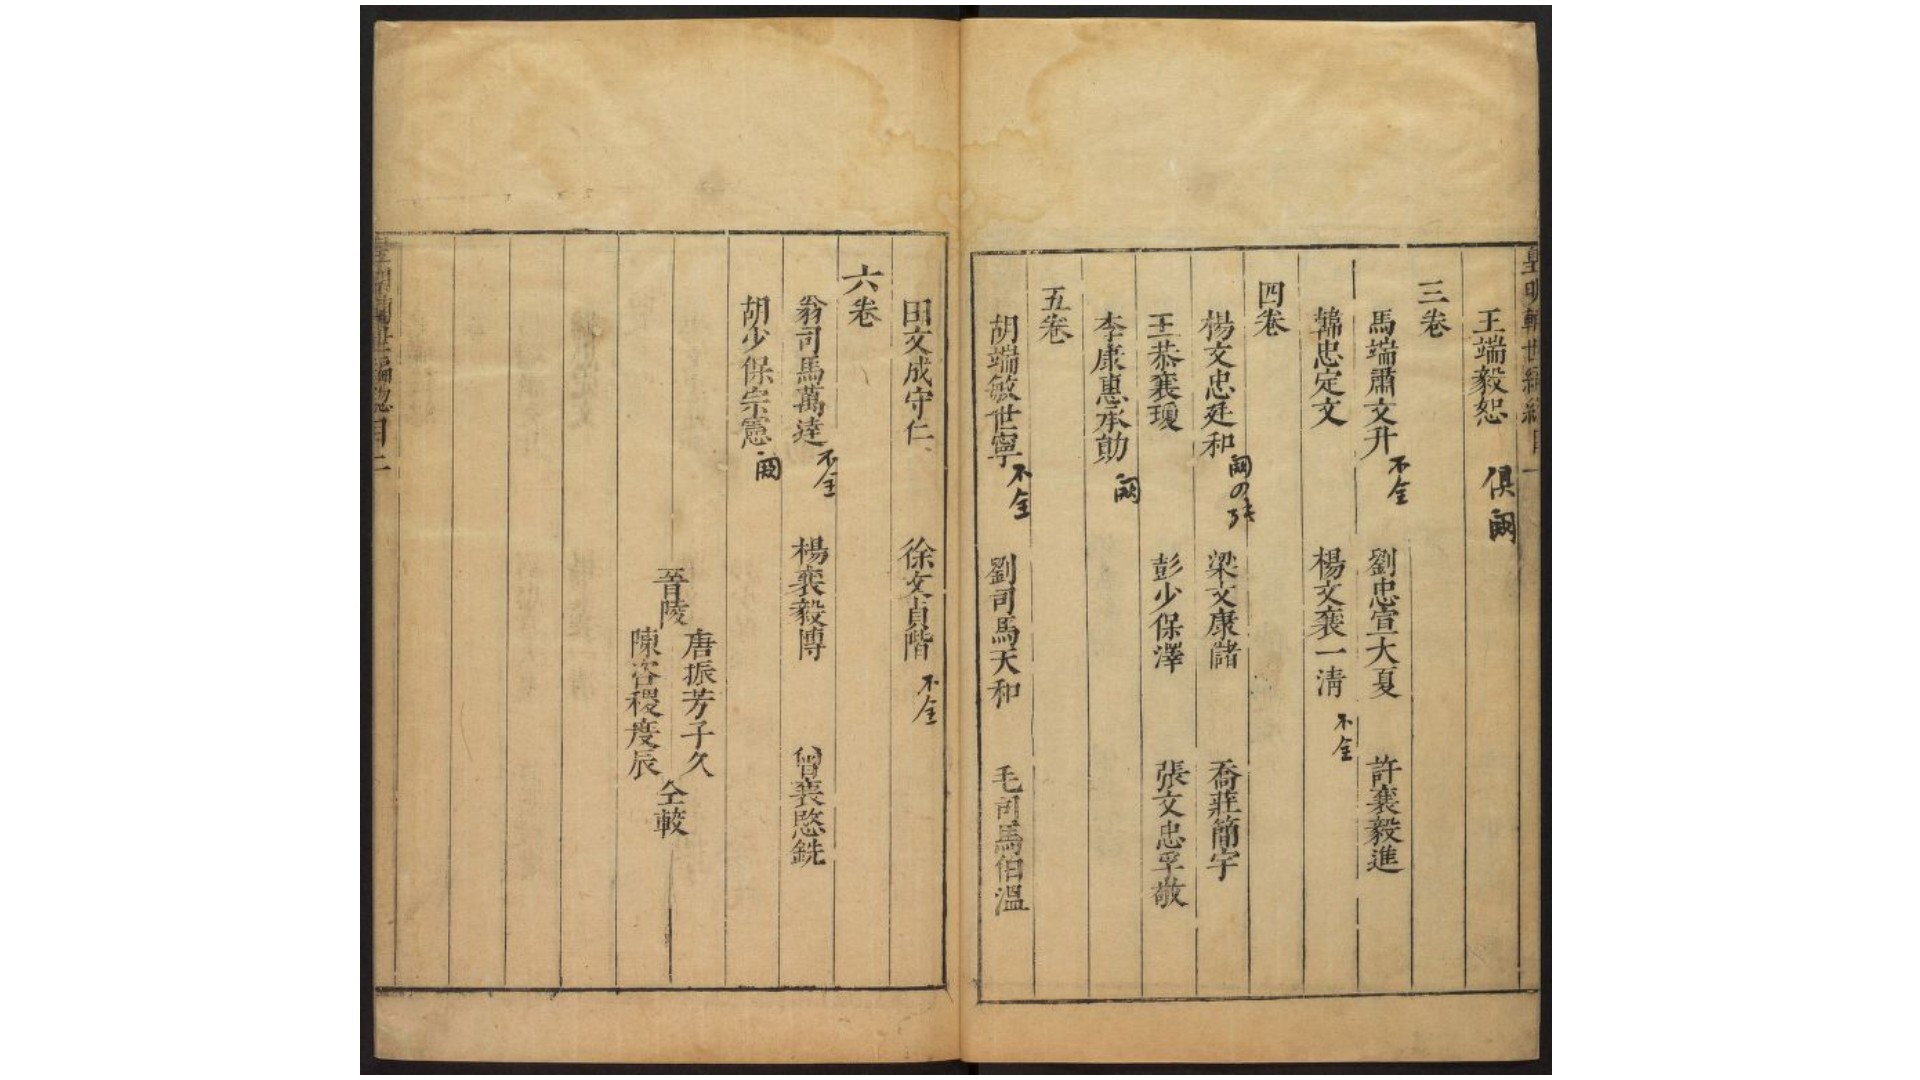 皇明輔世編總目一
王端毅恕 俱闕
三卷
馬端肅文升 不全 劉忠宣大夏 許襄毅進
韓忠定文 楊文襄一清 不全
四卷
楊文忠廷和 闕の張 梁文康儲 喬莊簡宇
王恭襄瓊 彭少保澤 張文忠孚敬
李康惠承勛 闕
五卷
胡端敏世寧 不全 劉司馬天和 毛司馬伯溫
王文成守仁 徐文貞階 不全
六卷
翁司馬萬達 不全 楊襄毅博 曾襄愍銑
胡少保宗憲 闕
晉陵
唐振芳子久
陳容稷度辰
仝較
皇明輔世編總目二